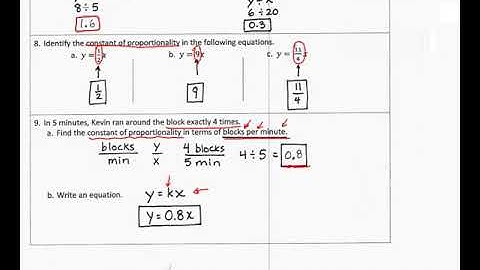 8 ÷ 5
1.6
y ÷ x
6 ÷ 20
0.3
8. Identify the constant of proportionality in the following equations.
a. y = 1/2 x
b. y = 9x
c. y = 11/4 x
1/2
9
11/4
9. In 5 minutes, Kevin ran around the block exactly 4 times.
a. Find the constant of proportionality in terms of blocks per minute.
blocks/min y/x 4 blocks/5 min 4 ÷ 5 = 0.8
b. Write an equation.
y = kx
y = 0.8x